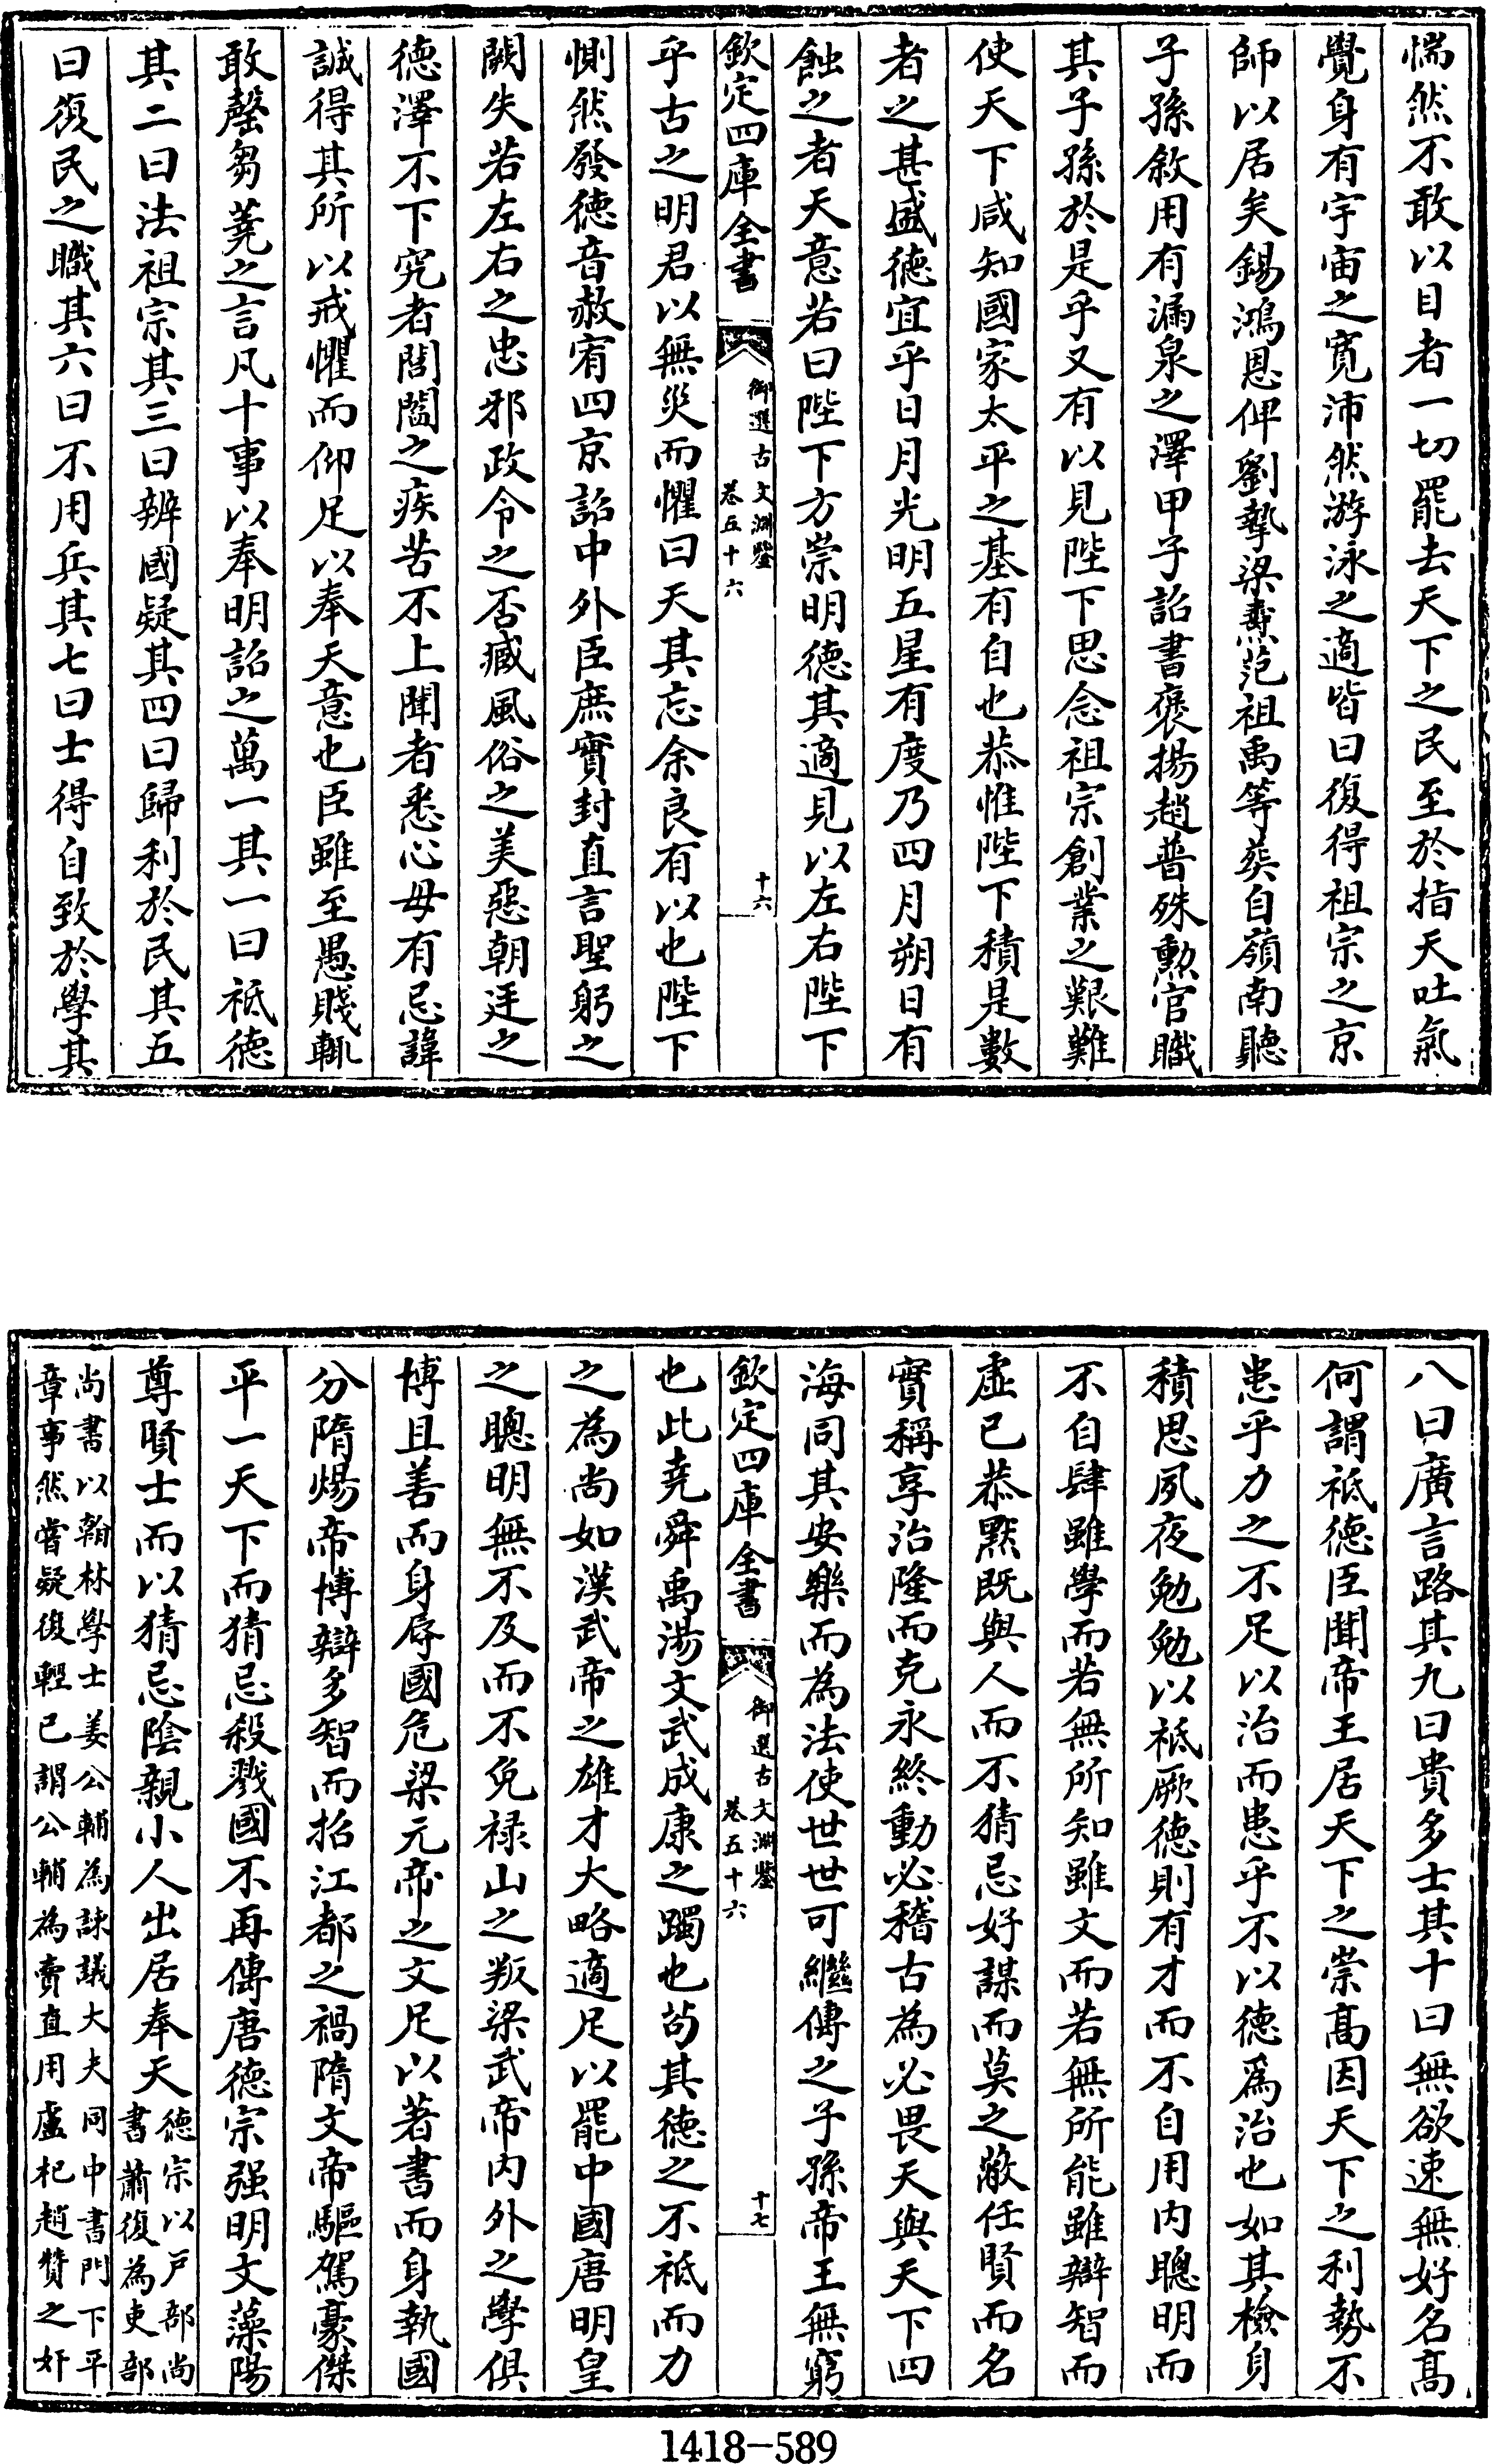 惴然不敢以目者一切罷去天下之民至於指天吐氣
覺身有宇宙之寛沛然游泳之適皆曰復得祖宗之京
師以居矣錫鴻恩俾劉摯梁燾范祖禹等葬自嶺南聽
子孫敘用有漏泉之澤甲子詔書褒揚趙普殊勲官職
其子孫於是乎又有以見陛下思念祖宗創業之艱難
使天下咸知國家太平之基有自也恭惟陛下積是數
者之甚盛徳宜乎日月光明五星有度乃四月朔日有
蝕之者天意若曰陛下方崇明徳其適見以左右陛下
欽定四庫全書
御選古文淵鑒
卷五十六
十六
乎古之明君以無災而懼曰天其忘余良有以也陛下
惻然發徳音赦宥四京詔中外臣庶實封直言聖躬之
闕失若左右之忠邪政令之否臧風俗之美惡朝廷之
徳澤不下究者閭閻之疾苦不上聞者悉心毋有忌諱
誠得其所以戒懼而仰足以奉天意也臣雖至愚賤輒
敢罄芻蕘之言凡十事以奉明詔之萬一其一曰祗徳
其二曰法祖宗其三曰辨國疑其四曰歸利於民其五
曰復民之職其六曰不用兵其七曰士得自致於學其
八曰廣言路其九曰貴多士其十曰無欲速無好名髙
何謂祗徳臣聞帝王居天下之崇髙因天下之利勢不
患乎力之不足以治而患乎不以徳爲治也如其檢身
積思夙夜勉勉以祗厥徳則有才而不自用内聰明而
不自肆雖學而若無所知雖文而若無所能雖辯智而
虚已恭黙既與人而不猜忌好謀而莫之蔽任賢而名
實稱享治隆而克永終動必稽古為必畏天與天下四
海同其安樂而為法使世世可繼傳之子孫帝王無窮
欽定四庫全書
御選古文淵鑒
卷五十六
十七
也此堯舜禹湯文武成康之躅也茍其徳之不祗而力
之為尚如漢武帝之雄才大略適足以罷中國唐明皇
之聰明無不及而不免禄山之叛梁武帝内外之學俱
博且善而身辱國危梁元帝之文足以著書而身執國
分隋煬帝博辯多智而招江都之禍隋文帝驅駕豪傑
平一天下而猜忌殺戮國不再傳唐徳宗强明文藻陽
尊賢士而以猜忌陰親小人出居奉天徳宗以戸部尚
書蕭復為吏部
尚書以翰林學士姜公輔為諫議大夫同中書門下平
章事然嘗疑復輕已謂公輔為賣直用盧杞趙贊之奸
1418-589